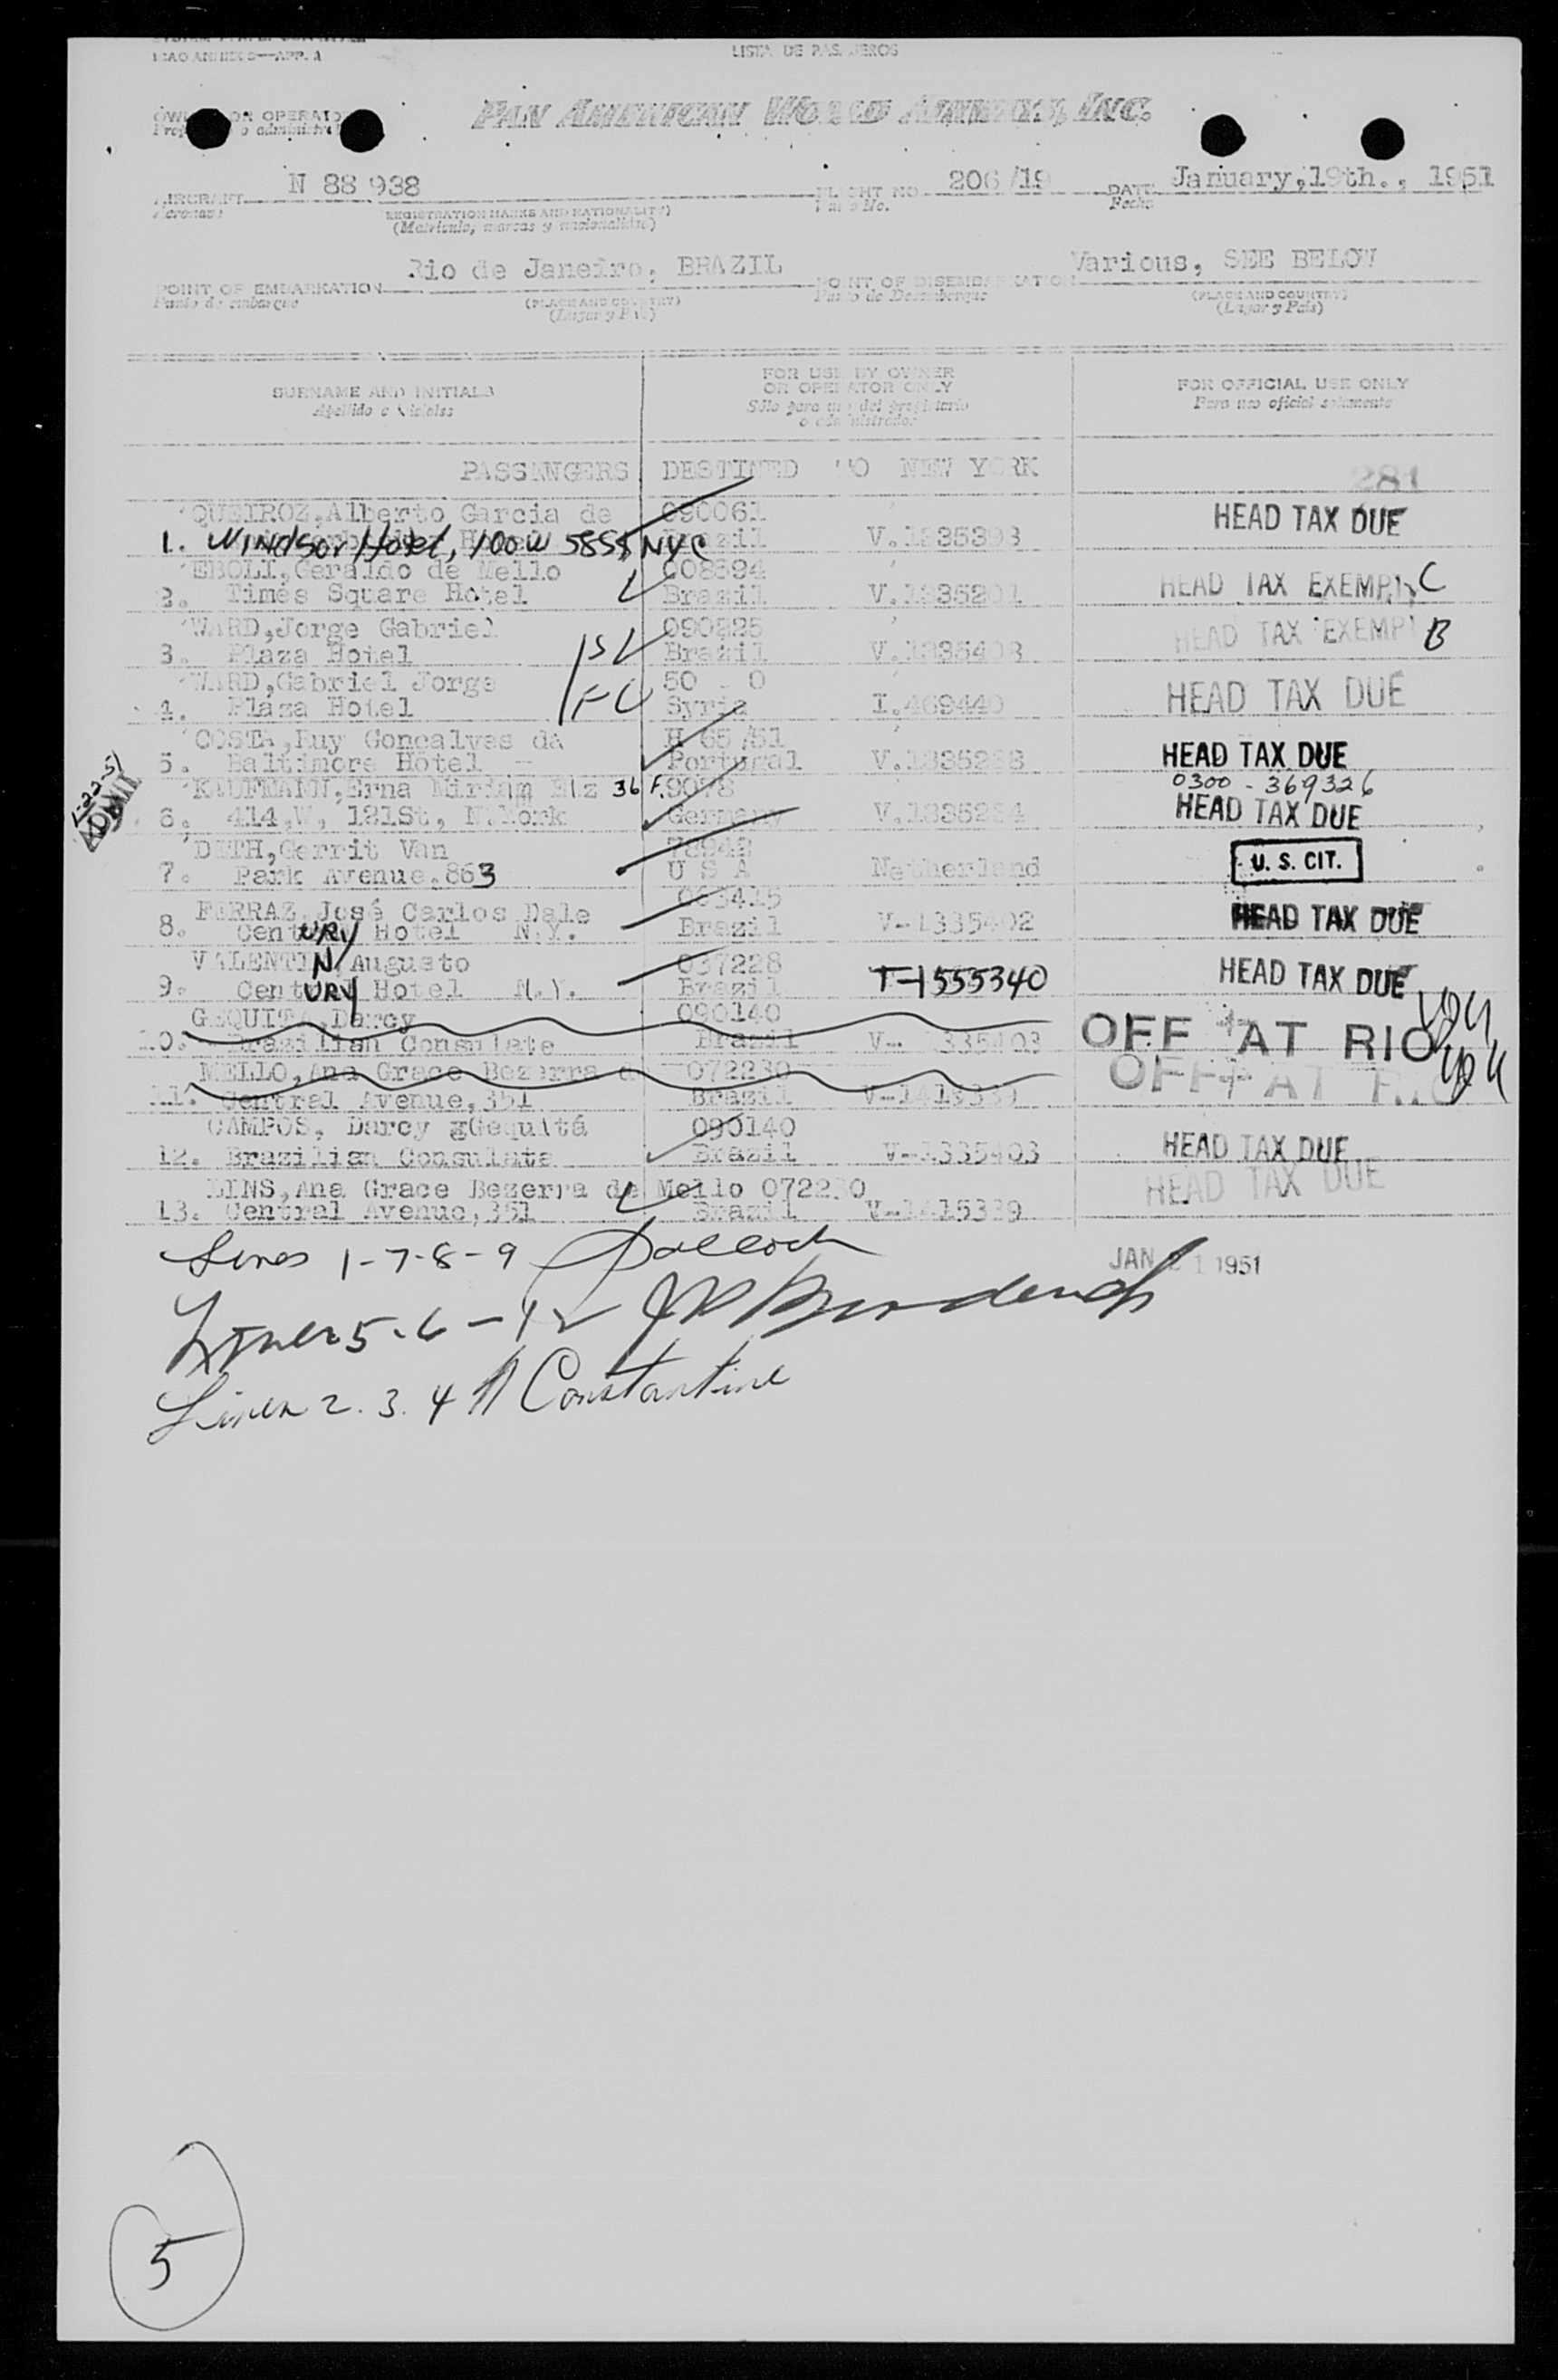 ICAO ANNEX 9—APP. A
LISTA DE PASAJEROS
OWNER OR OPERATOR
PAN AMERICAN WORLD AIRWAYS, INC.
AIRCRAFT N 88 938 FLIGHT NO. 206/19 DATE January,19th., 1951
Aeronave (REGISTRATION MARKS AND NATIONALITY) Vuelo No. Fecha
(Matrícula, marcas y nacionalidad)
Rio de Janeiro, BRAZIL Various, SEE BELOW
POINT OF EMBARKATION POINT OF DISEMBARKATION
Punto de embarque (PLACE AND COUNTRY) Punto de Desembarque (PLACE AND COUNTRY)
(Lugar y País) (Lugar y País)
SURNAME AND INITIALS FOR USE BY OWNER OR OPERATOR ONLY FOR OFFICIAL USE ONLY
Apellido e iniciales Sólo para uso del propietario o administrador Para uso oficial solamente
PASSANGERS DESTINED TO NEW YORK 281
QUEIROZ,Alberto Garcia de 090061 HEAD TAX DUE
1. Windsor Hotel, 100 W 58St NYC V.1335393
EBOLI,Geraldo de Mello 008894 HEAD TAX EXEMPT C
2. Times Square Hotel Brazil V.1335201
WARD,Jorge Gabriel 090225 HEAD TAX EXEMPT B
3. Plaza Hotel Brazil V.1335403
WARD,Gabriel Jorge 50 - 0 HEAD TAX DUE
4. Plaza Hotel Syria I.469440
COSTA,Ruy Goncalves da H 65/51
5. Baltimore Hotel Portugal HEAD TAX DUE
1-22-51 ADMIT
KAUFMANN,Erna Miriam 36 F. 9078 0300 - 369326
6. 414,W, 121St, N.York Germany HEAD TAX DUE
DETH,Gerrit Van 78942
7. Park Avenue.863 U S A Netherland U. S. CIT.
FERRAZ,José Carlos Dale 063415
8. Century Hotel N.Y. Brazil V-1335402 HEAD TAX DUE
VALENTIN,Augusto 037228 HEAD TAX DUE
9. Century Hotel N.Y. Brazil T-1555340
GEQUITA,Darcy 090140
10. Brazilian Consulate Brazil V-1335403 OFF AT RIO
MELLO,Ana Grace Bezerra d 072230 OFF AT RIO
11. Central Avenue,351 Brazil
CAMPOS, Darcy gGequitá 090140
12. Brazilian Consulate Brazil V-1335403 HEAD TAX DUE
LINS,Ana Grace Bezerra de Mello 072230 HEAD TAX DUE
13. Central Avenue,351 Brazil V-1415339
Lines 1-7-8-9
JAN 21 1951
Lines 5-6-12
Lines 2. 3. 4 11 Constantine
5